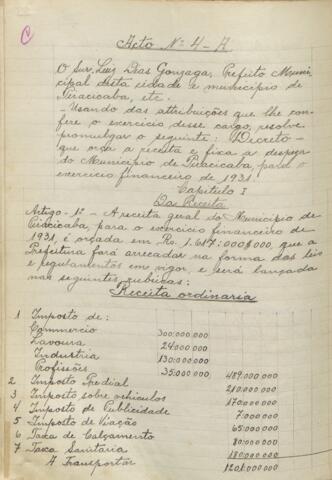 C
Acto Nº 4-A
O Snr. Luiz Dias Gonzaga, Prefeito Muni-
cipal desta cidade e municipio de
Piracicaba, etc.
- Usando das attribuições que lhe con-
fere o exercicio desse cargo, resolve
promulgar o seguinte: Decreto -
que orça a receita e fixa a despeza
do Municipio de Piracicaba, para o
exercicio financeiro de 1931.
Capitulo I
Da Receita
Artigo - 1º - A receita geral do Municipio de
Piracicaba para o exercicio financeiro de
1931, é orçada em Rs. 1.617:000$000, que a
Prefeitura fará arrecadar na forma das leis
e regulamentos em vigor, e será lançada
nas seguintes rubricas:
Receita ordinaria
1 Imposto de:
Commercio 300:000.000
Lavoura 24:000.000
Industria 130:000.000
Profissões 35:000.000 489:000.000
2 Imposto Predial 210:000.000
3 Imposto sobre vehiculos 170:000.000
4 Imposto de Publicidade 7:000.000
5 Imposto de Viação 65:000.000
6 Taxa de Calçamento 80:000.000
7 Taxa Sanitaria 180:000.000
A Transportar 1201:000.000